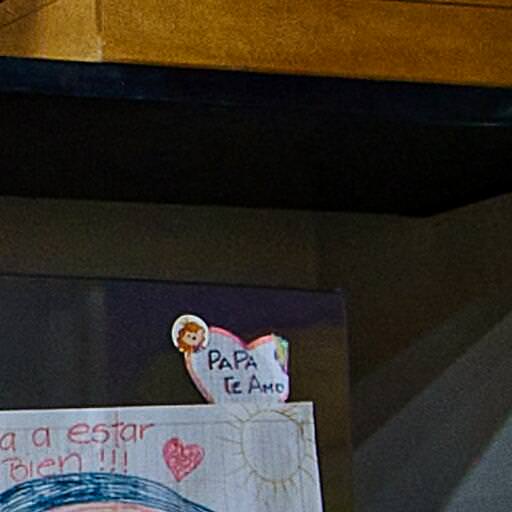 PAPÁ
TE AMO
a a estar
Bien !!!